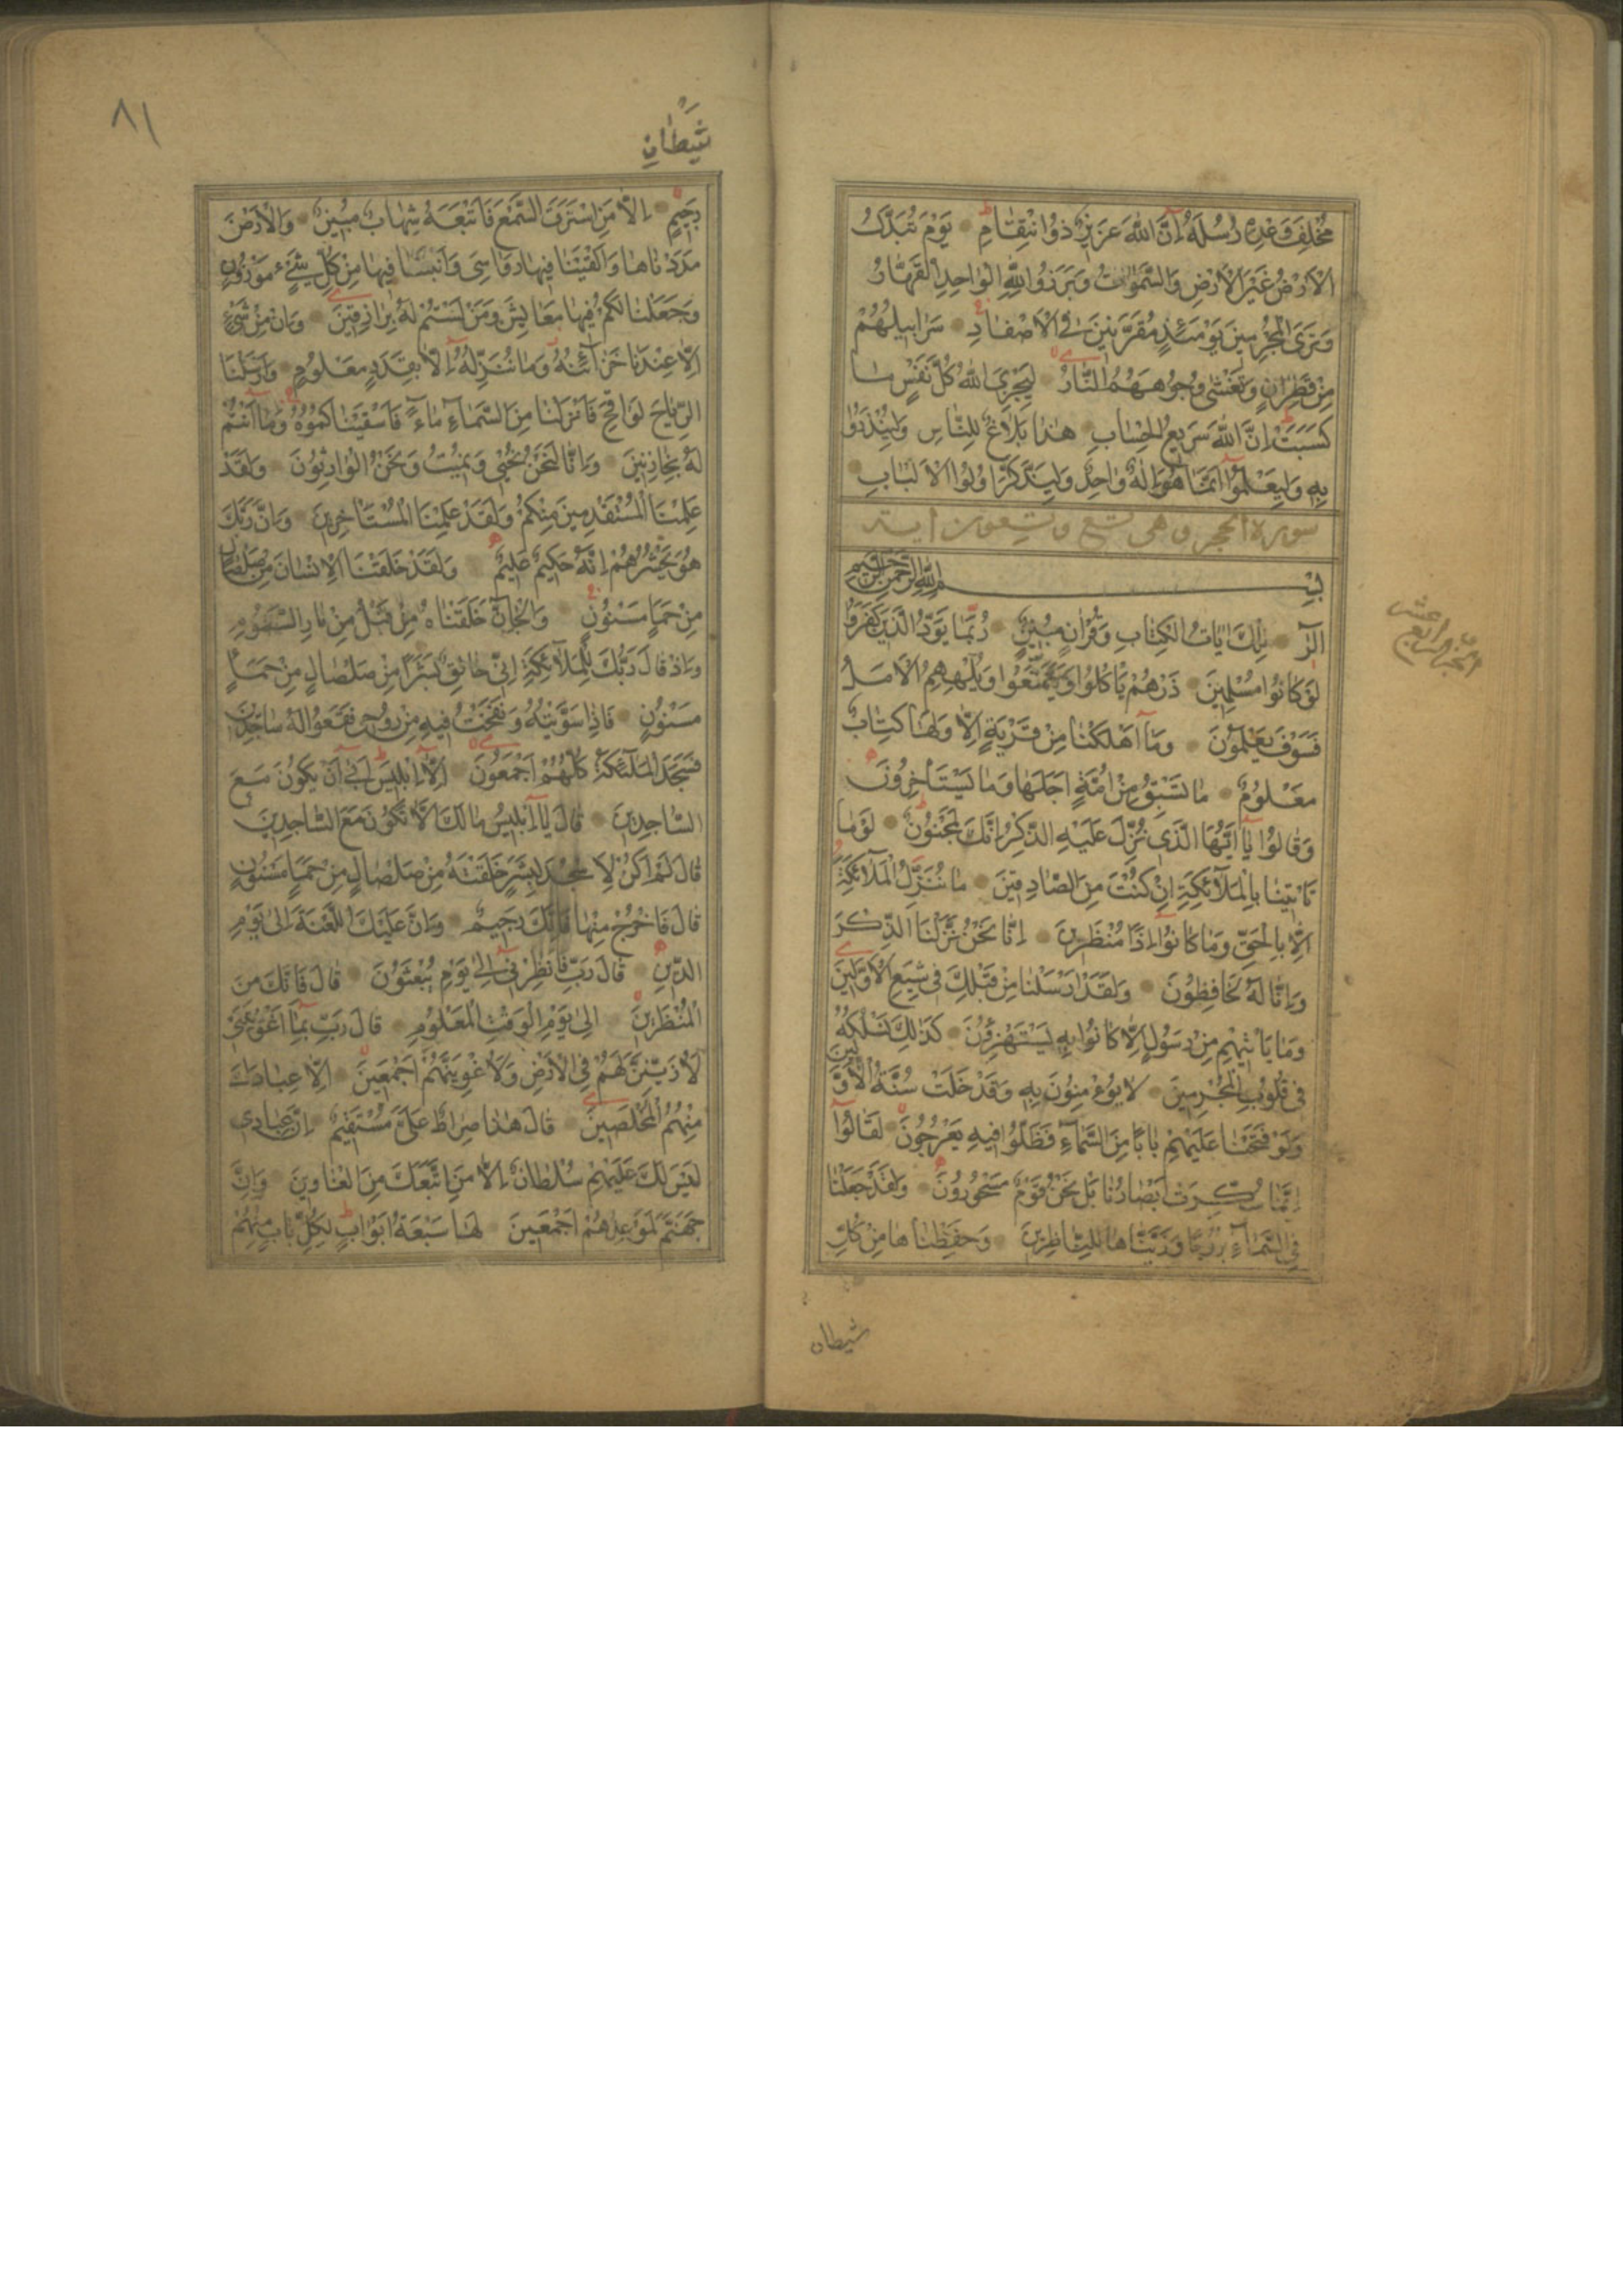 مُخْلِفَ وَعْدِهِ رُسُلَهُ اِنَّ اللهَ عَزِيزٌ ذُوا نْتِقَامٍ يَوْمَ تُبَدَّلُ
الْاَرْضُ غَيْرَ الْاَرْضِ وَالسَّمٰوَاتُ وَبَرَزُوا لِلّٰهِ الْوَاحِدِ الْقَهَّارُ
وَتَرَى الْمُجْرِمِينَ يَوْمَئِذٍ مُقَرَّنِينَ فِى الْاَصْفَادِ سَرَابِيلُهُمْ
مِنْ قَطِرَانٍ وَتَغْشٰى وُجُوهَهُمُ النَّارُ لِيَجْزِىَ اللهُ كُلَّ نَفْسٍ مَا
كَسَبَتْ اِنَّ اللهَ سَرِيعُ الْحِسَابِ هٰذَا بَلَاغٌ لِلنَّاسِ وَلِيُنْذَرُوا
بِهِ وَلِيَعْلَمُوا اَنَّمَا هُوَ اِلٰهٌ وَاحِدٌ وَلِيَذَّكَّرَ اُولُوا الْاَلْبَابِ
سورة الحجر وهى تسع وتسعون اية
بِسْمِ اللهِ الرَّحْمٰنِ الرَّحِيمِ
الٓرٰ تِلْكَ اٰيَاتُ الْكِتَابِ وَقُرْاٰنٍ مُبِينٍ رُبَمَا يَوَدُّ الَّذِينَ كَفَرُوا
لَوْ كَانُوا مُسْلِمِينَ ذَرْهُمْ يَاْكُلُوا وَيَتَمَتَّعُوا وَيُلْهِهِمُ الْاَمَلُ
فَسَوْفَ يَعْلَمُونَ وَمَا اَهْلَكْنَا مِنْ قَرْيَةٍ اِلَّا وَلَهَا كِتَابٌ
مَعْلُومٌ مَا تَسْبِقُ مِنْ اُمَّةٍ اَجَلَهَا وَمَا يَسْتَاْخِرُونَ
وَقَالُوا يَا اَيُّهَا الَّذِى نُزِّلَ عَلَيْهِ الذِّكْرُ اِنَّكَ لَمَجْنُونٌ لَوْمَا
تَاْتِينَا بِالْمَلَائِكَةِ اِنْ كُنْتَ مِنَ الصَّادِقِينَ مَا نُنَزِّلُ الْمَلَائِكَةَ
اِلَّا بِالْحَقِّ وَمَا كَانُوا اِذًا مُنْظَرِينَ اِنَّا نَحْنُ نَزَّلْنَا الذِّكْرَ
وَاِنَّا لَهُ لَحَافِظُونَ وَلَقَدْ اَرْسَلْنَا مِنْ قَبْلِكَ فِى شِيَعِ الْاَوَّلِينَ
وَمَا يَاْتِيهِمْ مِنْ رَسُولٍ اِلَّا كَانُوا بِهِ يَسْتَهْزِؤُنَ كَذٰلِكَ نَسْلُكُهُ
فِى قُلُوبِ الْمُجْرِمِينَ لَا يُؤْمِنُونَ بِهِ وَقَدْ خَلَتْ سُنَّةُ الْاَوَّلِينَ
وَلَوْ فَتَحْنَا عَلَيْهِمْ بَابًا مِنَ السَّمَاءِ فَظَلُّوا فِيهِ يَعْرُجُونَ لَقَالُوا
اِنَّمَا سُكِّرَتْ اَبْصَارُنَا بَلْ نَحْنُ قَوْمٌ مَسْحُورُونَ وَلَقَدْ جَعَلْنَا
فِى السَّمَاءِ بُرُوجًا وَزَيَّنَّاهَا لِلنَّاظِرِينَ وَحَفِظْنَاهَا مِنْ كُلِّ
شيطان
الجزء الرابع عشر
٨١
شَيْطَانٍ
رَجِيمٍ اِلَّا مَنِ اسْتَرَقَ السَّمْعَ فَاَتْبَعَهُ شِهَابٌ مُبِينٌ وَالْاَرْضَ
مَدَدْنَاهَا وَاَلْقَيْنَا فِيهَا رَوَاسِىَ وَاَنْبَتْنَا فِيهَا مِنْ كُلِّ شَىْءٍ مَوْزُونٍ
وَجَعَلْنَا لَكُمْ فِيهَا مَعَايِشَ وَمَنْ لَسْتُمْ لَهُ بِرَازِقِينَ وَاِنْ مِنْ شَىْءٍ
اِلَّا عِنْدَنَا خَزَائِنُهُ وَمَا نُنَزِّلُهُ اِلَّا بِقَدَرٍ مَعْلُومٍ وَاَرْسَلْنَا
الرِّيَاحَ لَوَاقِحَ فَاَنْزَلْنَا مِنَ السَّمَاءِ مَاءً فَاَسْقَيْنَاكُمُوهُ وَمَا اَنْتُمْ
لَهُ بِخَازِنِينَ وَاِنَّا لَنَحْنُ نُحْيِى وَنُمِيتُ وَنَحْنُ الْوَارِثُونَ وَلَقَدْ
عَلِمْنَا الْمُسْتَقْدِمِينَ مِنْكُمْ وَلَقَدْ عَلِمْنَا الْمُسْتَاْخِرِينَ وَاِنَّ رَبَّكَ
هُوَ يَحْشُرُهُمْ اِنَّهُ حَكِيمٌ عَلِيمٌ وَلَقَدْ خَلَقْنَا الْاِنْسَانَ مِنْ صَلْصَالٍ
مِنْ حَمَاٍ مَسْنُونٍ وَالْجَانَّ خَلَقْنَاهُ مِنْ قَبْلُ مِنْ نَارِ السَّمُومِ
وَاِذْ قَالَ رَبُّكَ لِلْمَلَائِكَةِ اِنِّى خَالِقٌ بَشَرًا مِنْ صَلْصَالٍ مِنْ حَمَاٍ
مَسْنُونٍ فَاِذَا سَوَّيْتُهُ وَنَفَخْتُ فِيهِ مِنْ رُوحِى فَقَعُوا لَهُ سَاجِدِينَ
فَسَجَدَ الْمَلٰئِكَةُ كُلُّهُمْ اَجْمَعُونَ اِلَّا اِبْلِيسَ اَبٰى اَنْ يَكُونَ مَعَ
السَّاجِدِينَ قَالَ يَا اِبْلِيسُ مَا لَكَ اَلَّا تَكُونَ مَعَ السَّاجِدِينَ
قَالَ لَمْ اَكُنْ لِاَسْجُدَ لِبَشَرٍ خَلَقْتَهُ مِنْ صَلْصَالٍ مِنْ حَمَاٍ مَسْنُونٍ
قَالَ فَاخْرُجْ مِنْهَا فَاِنَّكَ رَجِيمٌ وَاِنَّ عَلَيْكَ اللَّعْنَةَ اِلٰى يَوْمِ
الدِّينِ قَالَ رَبِّ فَاَنْظِرْنِى اِلٰى يَوْمِ يُبْعَثُونَ قَالَ فَاِنَّكَ مِنَ
الْمُنْظَرِينَ اِلٰى يَوْمِ الْوَقْتِ الْمَعْلُومِ قَالَ رَبِّ بِمَا اَغْوَيْتَنِى
لَاُزَيِّنَنَّ لَهُمْ فِى الْاَرْضِ وَلَاُغْوِيَنَّهُمْ اَجْمَعِينَ اِلَّا عِبَادَكَ
مِنْهُمُ الْمُخْلَصِينَ قَالَ هٰذَا صِرَاطٌ عَلَىَّ مُسْتَقِيمٌ اِنَّ عِبَادِى
لَيْسَ لَكَ عَلَيْهِمْ سُلْطَانٌ اِلَّا مَنِ اتَّبَعَكَ مِنَ الْغَاوِينَ وَاِنَّ
جَهَنَّمَ لَمَوْعِدُهُمْ اَجْمَعِينَ لَهَا سَبْعَةُ اَبْوَابٍ لِكُلِّ بَابٍ مِنْهُمْ